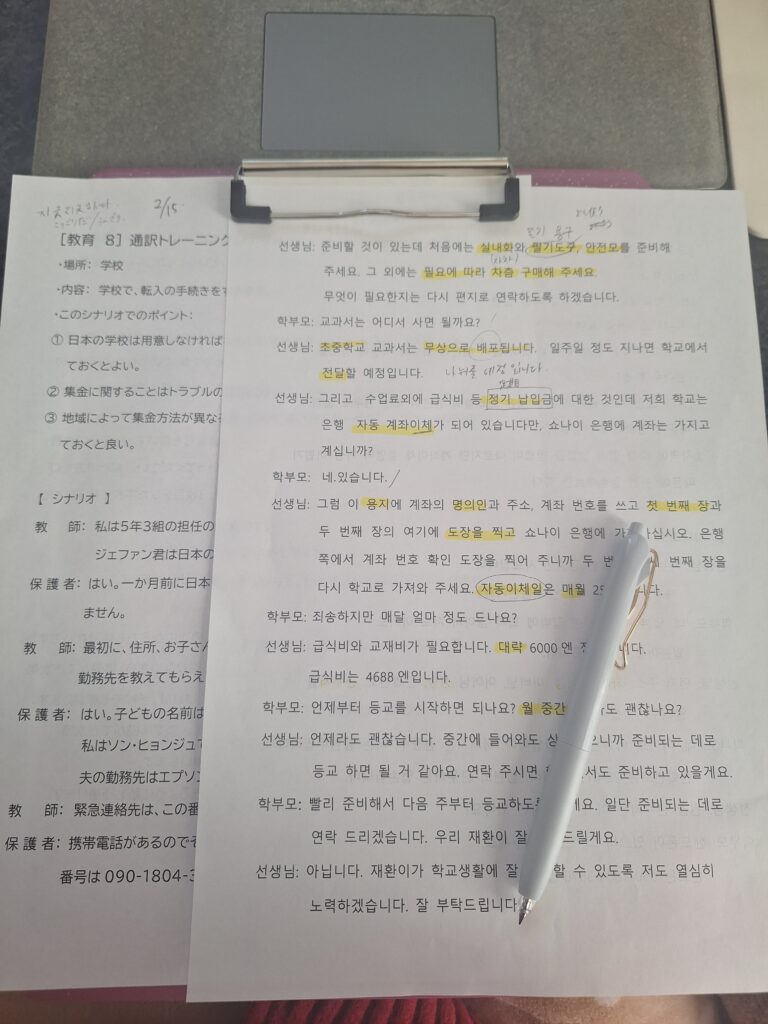 2/15
[教育 8] 通訳トレーニング
・場所: 学校
・内容: 学校で、転入の手続きを
・このシナリオでのポイント:
① 日本の学校は用意しなければ
ておくとよい。
② 集金に関することはトラブルの
③ 地域によって集金方法が異な
ておくと良い。
【 シナリオ 】
教 師: 私は5年3組の担任の
ジェファン君は日本の
保護者: はい。一か月前に日本
ません。
教 師: 最初に、住所、お子さん
勤務先を教えてもらえ
保護者: はい。子どもの名前は
私はソン・ヒョンジュ
夫の勤務先はエプソン
教 師: 緊急連絡先は、この番
保護者: 携帯電話があるので
番号は 090-1804-
필기 용구
선생님: 준비할 것이 있는데 처음에는 실내화와 필기도구, 안전모를 준비해
주세요. 그 외에는 필요에 따라 차츰 구매해 주세요.
무엇이 필요한지는 다시 편지로 연락하도록 하겠습니다.
학부모: 교과서는 어디서 사면 될까요?
선생님: 초중학교 교과서는 무상으로 배포됩니다. 일주일 정도 지나면 학교에서
전달할 예정입니다. 나눠줄 예정입니다.
선생님: 그리고 수업료외에 급식비 등 정기 납입금에 대한 것인데 저희 학교는
은행 자동 계좌이체가 되어 있습니다만, 쇼나이 은행에 계좌는 가지고
계십니까?
학부모: 네.있습니다.
선생님: 그럼 이 용지에 계좌의 명의인과 주소, 계좌 번호를 쓰고 첫 번째 장과
두 번째 장의 여기에 도장을 찍고 쇼나이 은행에 가 십시오. 은행
쪽에서 계좌 번호 확인 도장을 찍어 주니까 두 번 번째 장을
다시 학교로 가져와 주세요. 자동이체일은 매월 25 니다.
학부모: 죄송하지만 매달 얼마 정도 드나요?
선생님: 급식비와 교재비가 필요합니다. 대략 6000 엔 니다.
급식비는 4688 엔입니다.
학부모: 언제부터 등교를 시작하면 되나요? 월 중간 도 괜찮나요?
선생님: 언제라도 괜찮습니다. 중간에 들어와도 으니까 준비되는 데로
등교 하면 될 거 같아요. 연락 주시면 서도 준비하고 있을게요.
학부모: 빨리 준비해서 다음 주부터 등교하도 요. 일단 준비되는 데로
연락 드리겠습니다. 우리 재환이 잘 드릴게요.
선생님: 아닙니다. 재환이가 학교생활에 잘 할 수 있도록 저도 열심히
노력하겠습니다. 잘 부탁드립니다